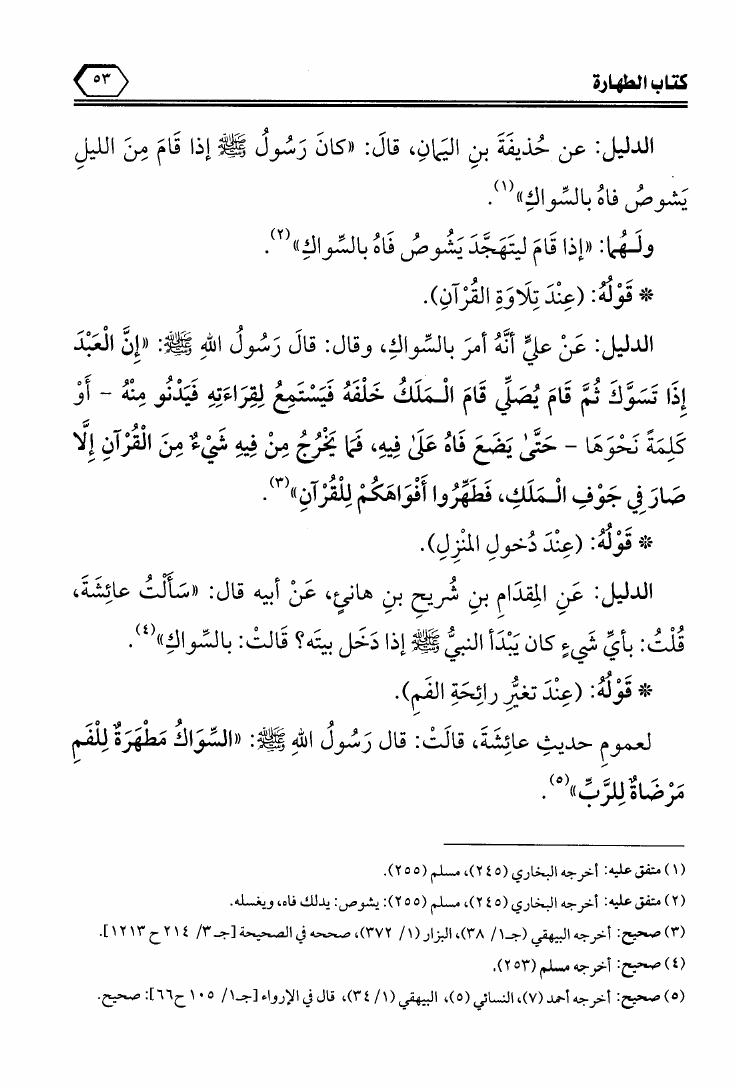 كتاب الطهارة
٥٣
الدليل: عن حُذيفَةَ بنِ اليَمانِ، قالَ: «كانَ رَسُولُ ﷺ إذا قَامَ مِنَ الليلِ
يَشوصُ فاهُ بالسِّواكِ»(١).
ولَـهُما: «إذا قَامَ ليتَهَجَّدَ يَشُوصُ فَاهُ بالسِّواكِ»(٢).
* قَوْلُهُ: (عِنْدَ تِلَاوَةِ القُرْآنِ).
الدليل: عَنْ عليٍّ أنَّهُ أمرَ بالسِّواكِ، وقال: قالَ رَسُولُ اللهِ ﷺ: «إِنَّ الْعَبْدَ
إِذَا تَسَوَّكَ ثُمَّ قَامَ يُصَلِّي قَامَ الْـمَلَكُ خَلْفَهُ فَيَسْتَمِعُ لِقِرَاءَتِهِ فَيَدْنُو مِنْهُ - أَوْ
كَلِمَةً نَحْوَهَا - حَتَّىٰ يَضَعَ فَاهُ عَلَىٰ فِيهِ، فَمَا يَخْرُجُ مِنْ فِيهِ شَيْءٌ مِنَ الْقُرْآنِ إِلَّا
صَارَ فِي جَوْفِ الْـمَلَكِ، فَطَهِّرُوا أَفْوَاهَكُمْ لِلْقُرْآنِ»(٣).
* قَوْلُهُ: (عِنْدَ دُخولِ المنْزِلِ).
الدليل: عَنِ المِقدَامِ بنِ شُريحِ بنِ هانئٍ، عَنْ أبيه قال: «سَأَلْتُ عائِشَةَ،
قُلْتُ: بأيِّ شَيءٍ كان يَبْدَأ النبيُّ ﷺ إذا دَخَل بيتَه؟ قَالتْ: بالسِّواكِ»(٤).
* قَوْلُهُ: (عِنْدَ تغيُّرِ رائِحَةِ الفَمِ).
لعمومِ حديثِ عائِشَةَ، قالَتْ: قال رَسُولُ اللهِ ﷺ: «السِّوَاكُ مَطْهَرَةٌ لِلْفَمِ
مَرْضَاةٌ لِلرَّبِّ»(٥).
(١) متفق عليه: أخرجه البخاري (٢٤٥)، مسلم (٢٥٥).
(٢) متفق عليه: أخرجه البخاري (٢٤٥)، مسلم (٢٥٥): يشوص: يدلك فاه، ويغسله.
(٣) صحيح: أخرجه البيهقي (جـ١/ ٣٨)، البزار (١/ ٣٧٢)، صححه في الصحيحة [جـ٣/ ٢١٤ ح ١٢١٣].
(٤) صحيح: أخرجه مسلم (٢٥٣).
(٥) صحيح: أخرجه أحمد (٧)، النسائي (٥)، البيهقي (١/ ٣٤)، قال في الإرواء [جـ١/ ١٠٥ ح٦٦]: صحيح.